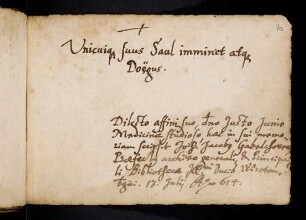 70
Unicuiq, suus Saul imminet atq,
Doëgus.
Dilecto affini suo, dno Justo Junio
Medicinæ studioso hæc in sui memo-
riam scripsit Joh: Jacob, Gabelchover
Præfect, archivo generali, & Principa-
li, Bibliothecæ Ducis Wirtem-
13. Julij Aº 614.